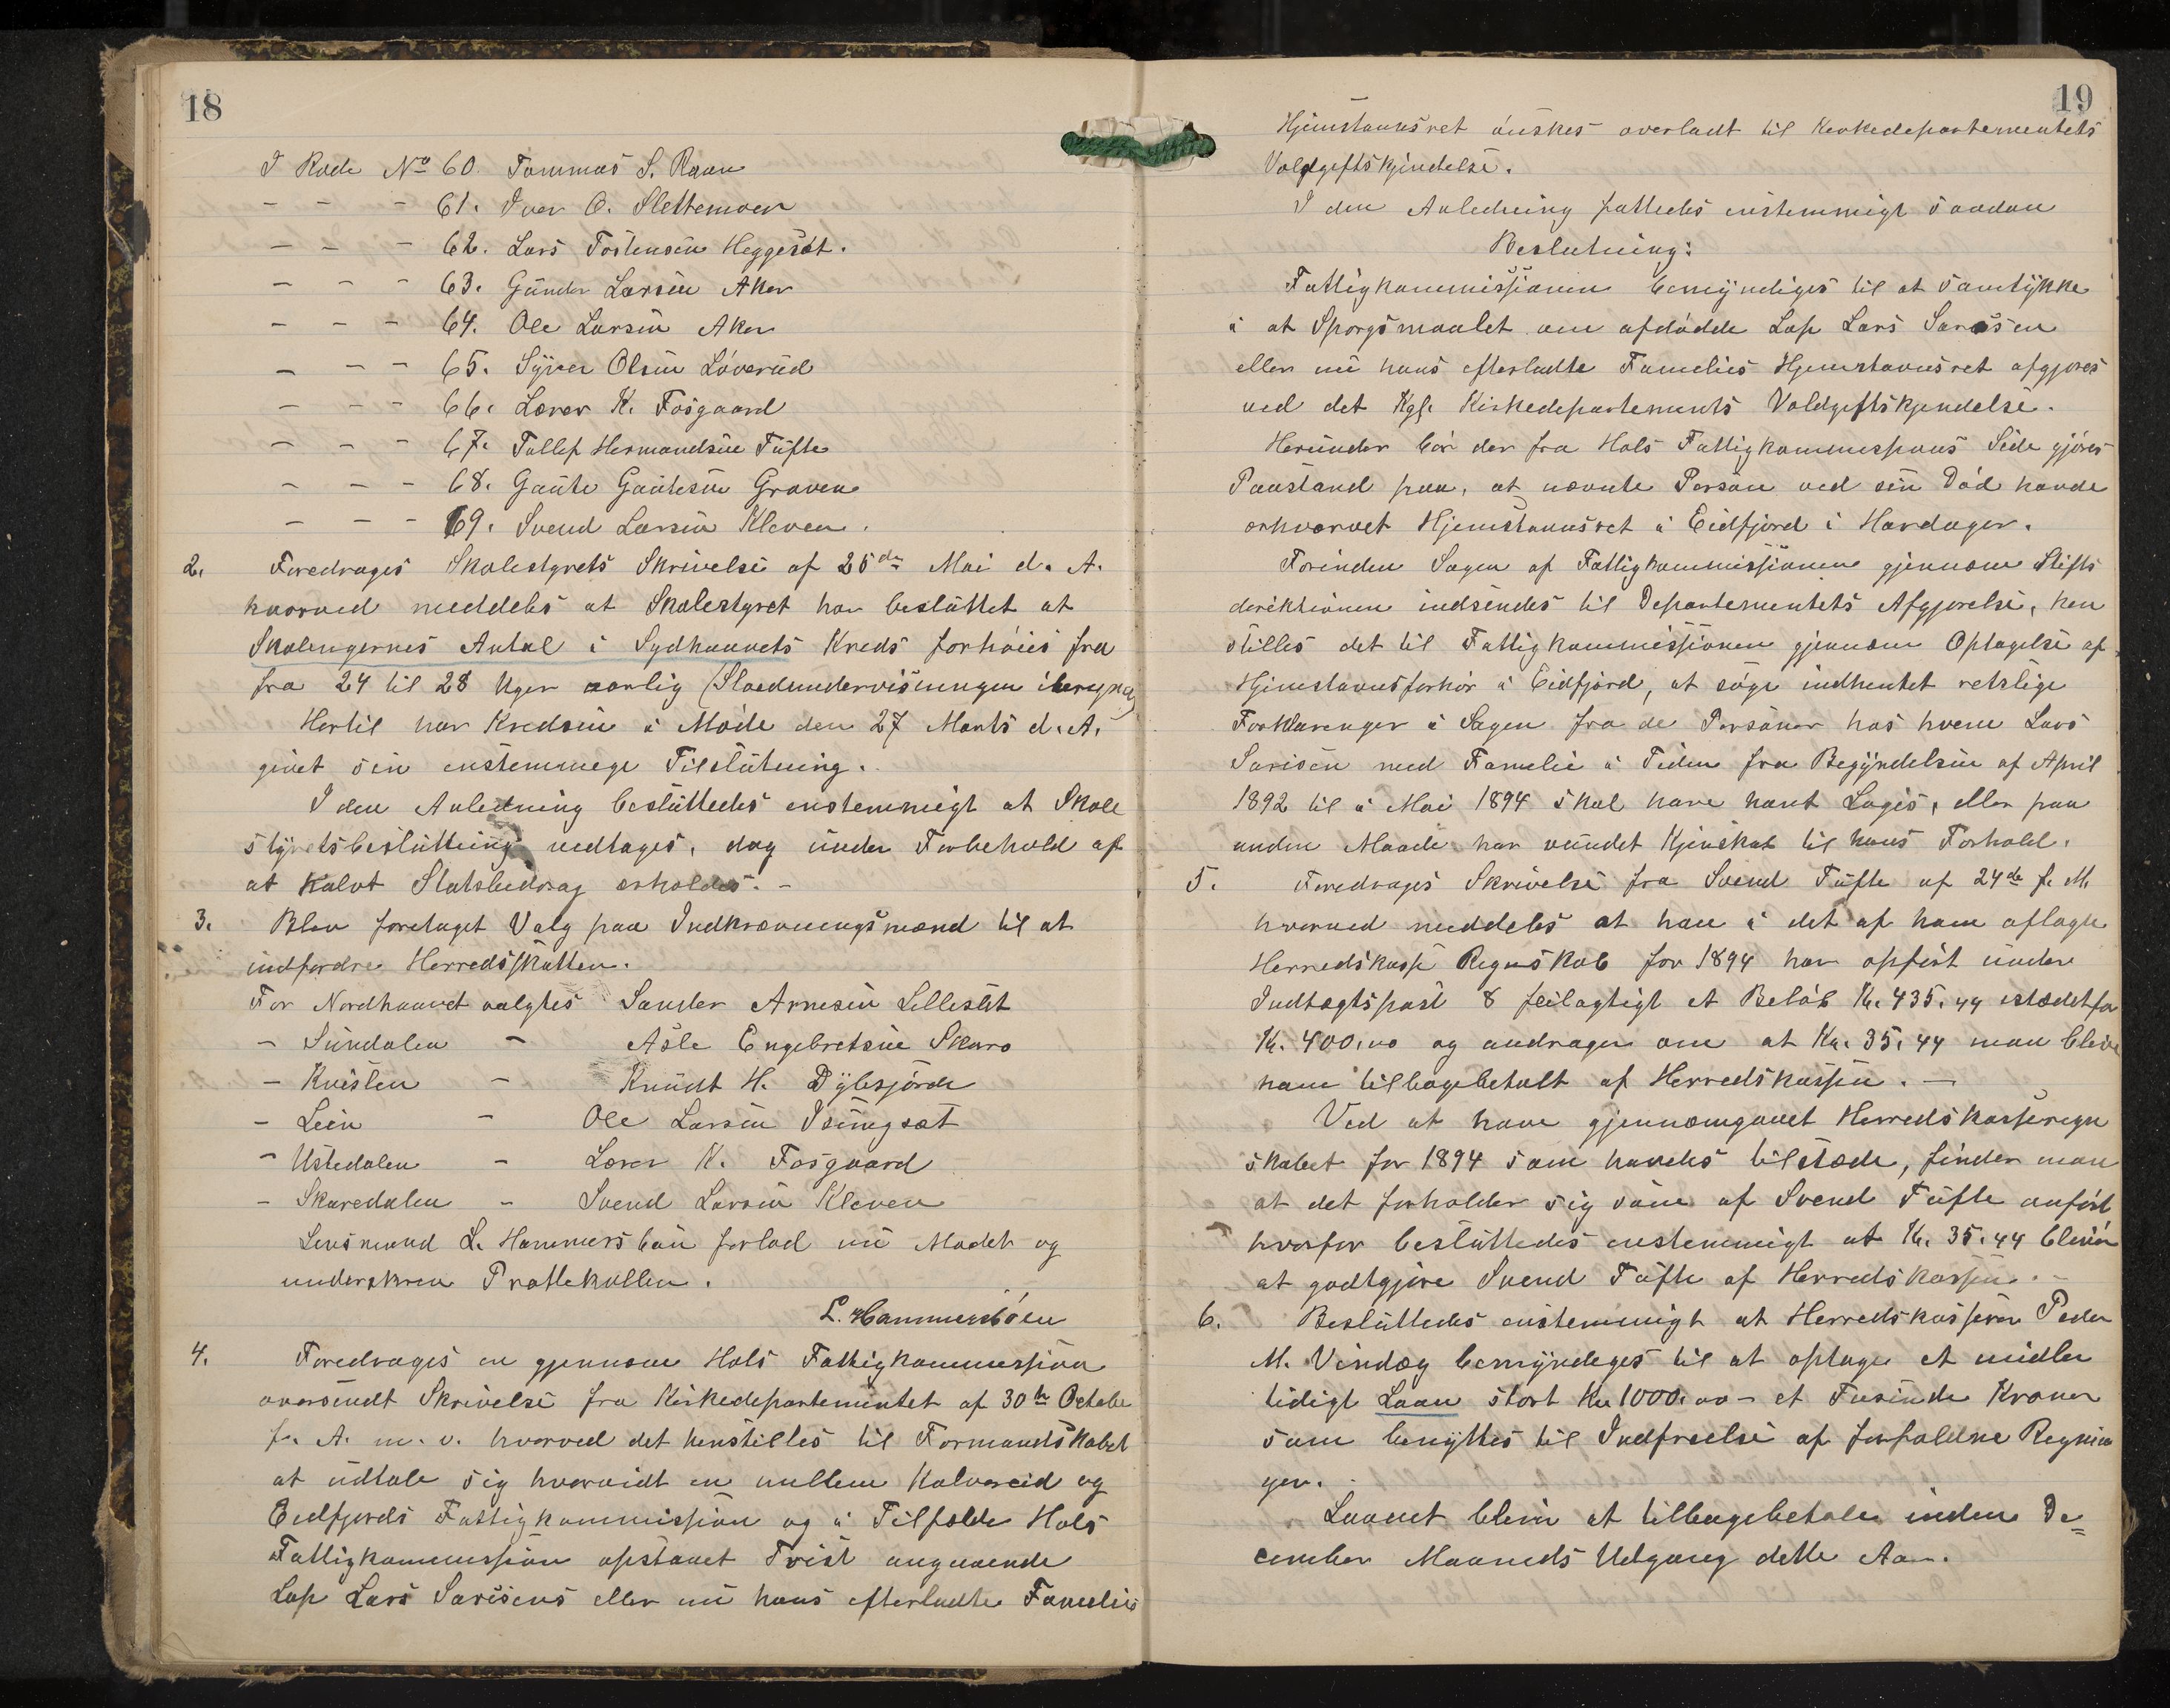 18
I Rode No 60. Tommas S. Raan
- - - 61. Iver O. Slettemoen
- - - 62. Lars Tostensen Heggesæt.
- - - 63. Gunder Larsen Aker
- - - 64. Ole Larsen Aker
- - - 65. Syver Olsen Løverud
- - - 66. Lærer K. Fosgaard
- - - 67. Tollef Hermandsen Tufte
- - - 68. Gaute Gautesen Graven
- - - 69. Svend Larsen Kleven.
2. Foredrages Skolestyrets Skrivelse af 25de Mai d. A.
hvorved meddeles at Skolestyret har besluttet at
Skolengernes Antal i Sydhauvets Kreds forhøies fra
fra 24 til 28 Uger aarlig (Sloedundervisningen iberegnet)
Hertil har Kredsen i Møde den 27 Marts d. A.
givet sin enstemmege Tilslutning.
I den Anledning besluttedes enstemmigt at Skole
styretsbeslutning vedtages, dog under Forbehold af
at Halvt Statsbidrag erholdes. -
3. Blev foretaget Valg paa Indkrævningsmænd til at
indfordre Herredsskatten.
For Nordhauvet valgtes Sander Arnesen Lilleslet
- Sundalen - Asle Engebretsen Skaro
- Kvislen - Knudt H. Dybsjorde
- Lein - Ole Larsen Isungsæt
- Ustedalen - Lærer K. Fosgaard
- Skuredalen - Svend Larsen Kleven
Lensmand L. Hammersbøn forlod nu Mødet og
underskrev Prottekollen.
L. Hammersbøen
4. Foredrages en gjennem Hols Fattigkommission
oversendt Skrivelse fra Kirkedepartementet af 30te October
f. A. m. v. hvorved det henstilles til Formandskabet
at udtale sig hvorvidt en mellem Kalvareid og
Eidfjords Fattigkommission og i Tilfælde Hols
Fattigkommission opstaaet Tvist angaaende
Lap Lars Sarisens eller nu hans efterladte Famelies
19
Hjemstavnsret ønskes overladt til Kerkedepartementets
Voldgiftskjendelse.
I den Anledning fattedes enstemmigt saadan
Beslutning:
Fattigkommissionen bemyndiges til at samtykke
i at Sporgsmaalet om afdødde Lap Lars Sarisen
eller nu hans efterladte Famelies Hjemstavnsret afgjores
ved det Kgl. Kirkedepartements Voldgiftskjendelse.
Herunder bør der fra Hols Fattigkommissions Side gjøres
Paastand paa, at nævnte Person ved sin Død havde
erhvervet Hjemstavnsret i Eidfjord i Hardager.
Forinden Sagen af Fattigkommissionen gjennem Stifts
derektionen indsendes til Departementets Afgjorelse, hen
stilles det til Fattigkommissionen gjennem Optagelse af
Hjemstavnsforhør i Eidfjord, at søge indhentet retslige
Forklarenger i Sagen fra de Personer hos hvem Lars
Sarisen med Famelie i Tiden fra Begyndelsen af April
1892 til i Mai 1894 skal have havt Logis, eller paa
anden Maade har vundet Kjenskab til hans Forhold.
5. Foredrages Skrivelse fra Svend Tufte af 24de f. M.
hvorved meddeles at han i det af ham aflagte
Herredskasse Regnskab for 1894 har opført under
Indtægtspost 8 feilagtigt et Beløb Kr. 435.44 istædetfor
Kr. 400.00 og andrager om at Kr. 35.44 maa blive
ham tilbagebetalt af Herredskassen. -
Ved at have gjennemgaaet Herredskasseregn
skabet for 1894 som havdes tilstæde, finder man
at det forholder sig som af Svend Tufte anført
hvorfor besluttedes enstemmigt at Kr. 35.44 bliver
at godtgjøre Svend Tufte af Herredskassen. -
6. Besluttedes enstemmigt at Herredskasserer Peder
M. Vindæg bemyndeges til at optage et midler
tidigt Laan stort Kr 1000.00 - et Tusinde Kroner
som benyttes til Indfrielse af forfaldne Regnin
ger.
Laanet bliver at tilbagebetale inden De=
cember Maaneds Udgang dette Aar.